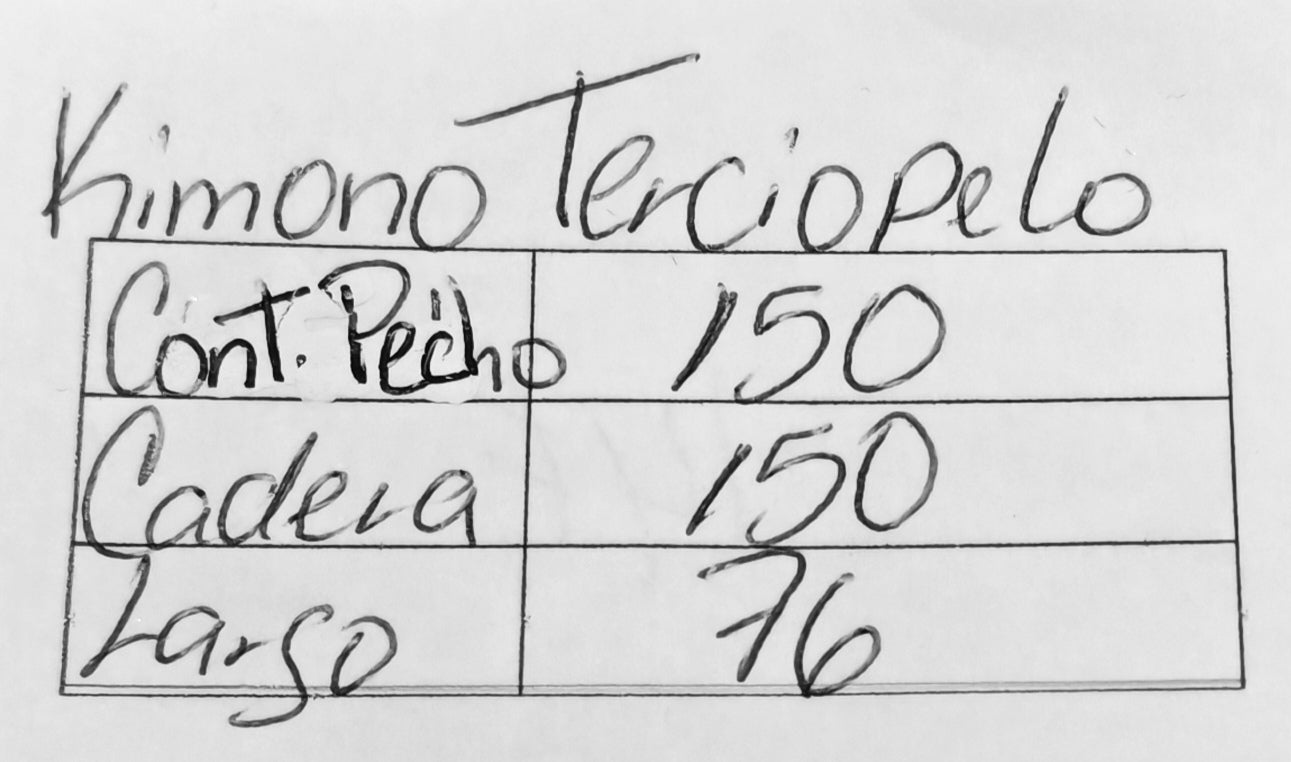 Kimono Terciopelo
Cont. Pecho 150
Cadera 150
Largo 76